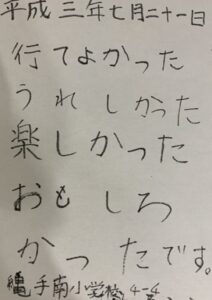 平成三年七月二十一日
行てよかった
うれしかった
楽しかった
おもしろ
かったです。
亀手南小学校 4-4